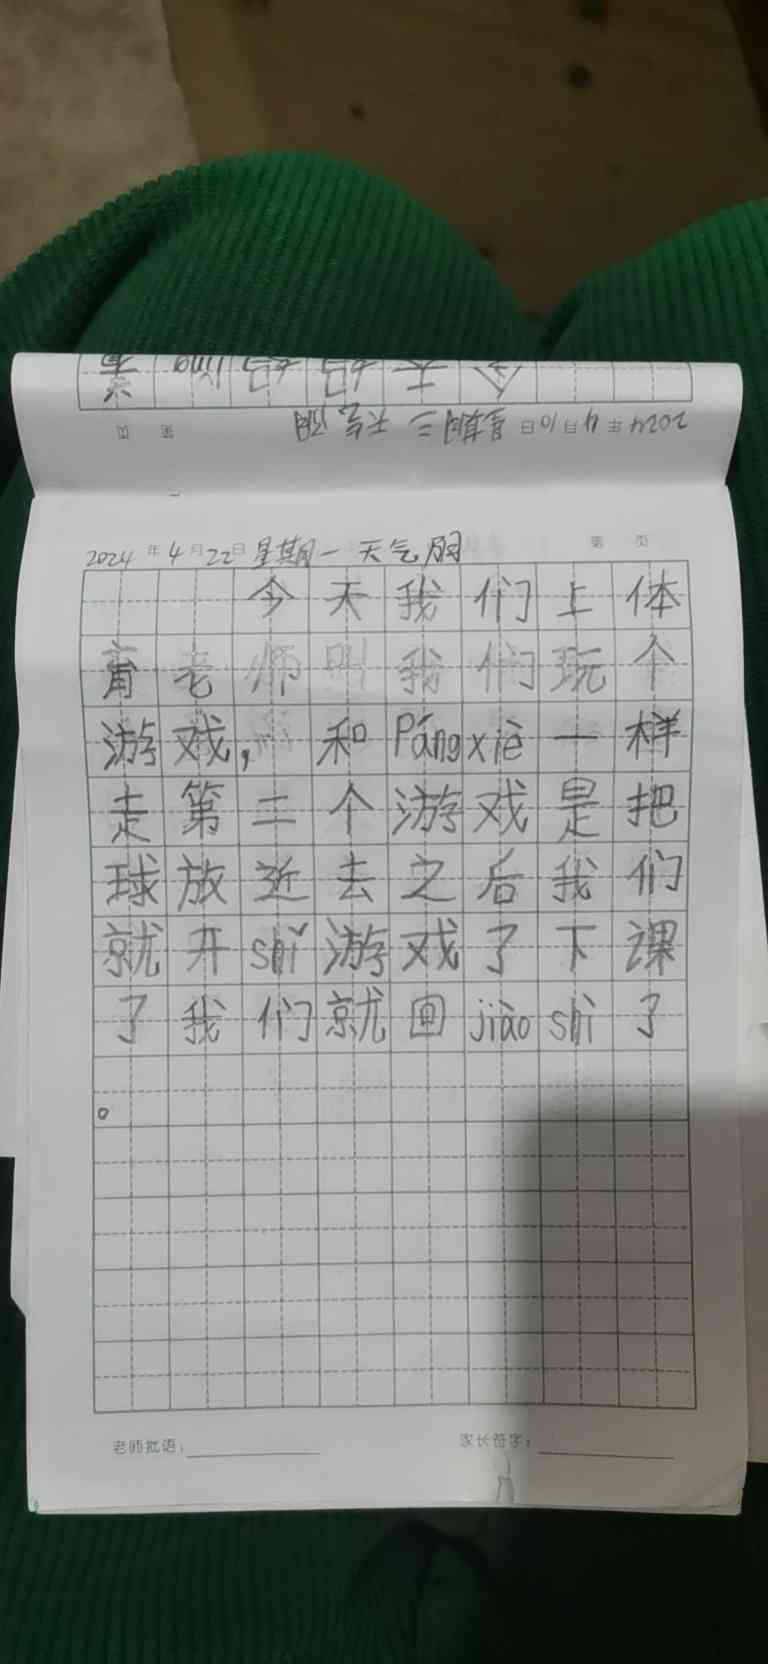 2024年4月10日 星期三 天气阴
第 页
2024年4月22日 星期一 天气阴
第 页
今天我们上体
育老师叫我们玩个
游戏,和Pángxiè一样
走第二个游戏是把
球放近去之后我们
就开shǐ游戏了下课
了我们就回jiào shì了
。
老师批语:
家长签字: